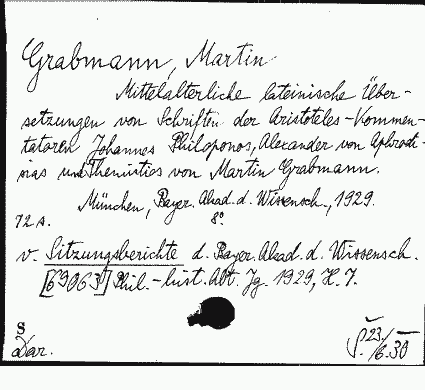 Grabmann, Martin
Mittelalterliche lateinische Über-
setzungen von Schriften der Aristoteles-Kommen-
tatoren Johannes Philoponos, Alexander von Aphrodi-
sias und Themistios von Martin Grabmann.
München, Bayer. Akad. d. Wissensch., 1929.
72 s. 8°
v. Sitzungsberichte d. Bayer. Akad. d. Wissensch.
[69063] Phil.-hist. Abt. Jg. 1929, H. 7.
S
Dar.
23/6.30